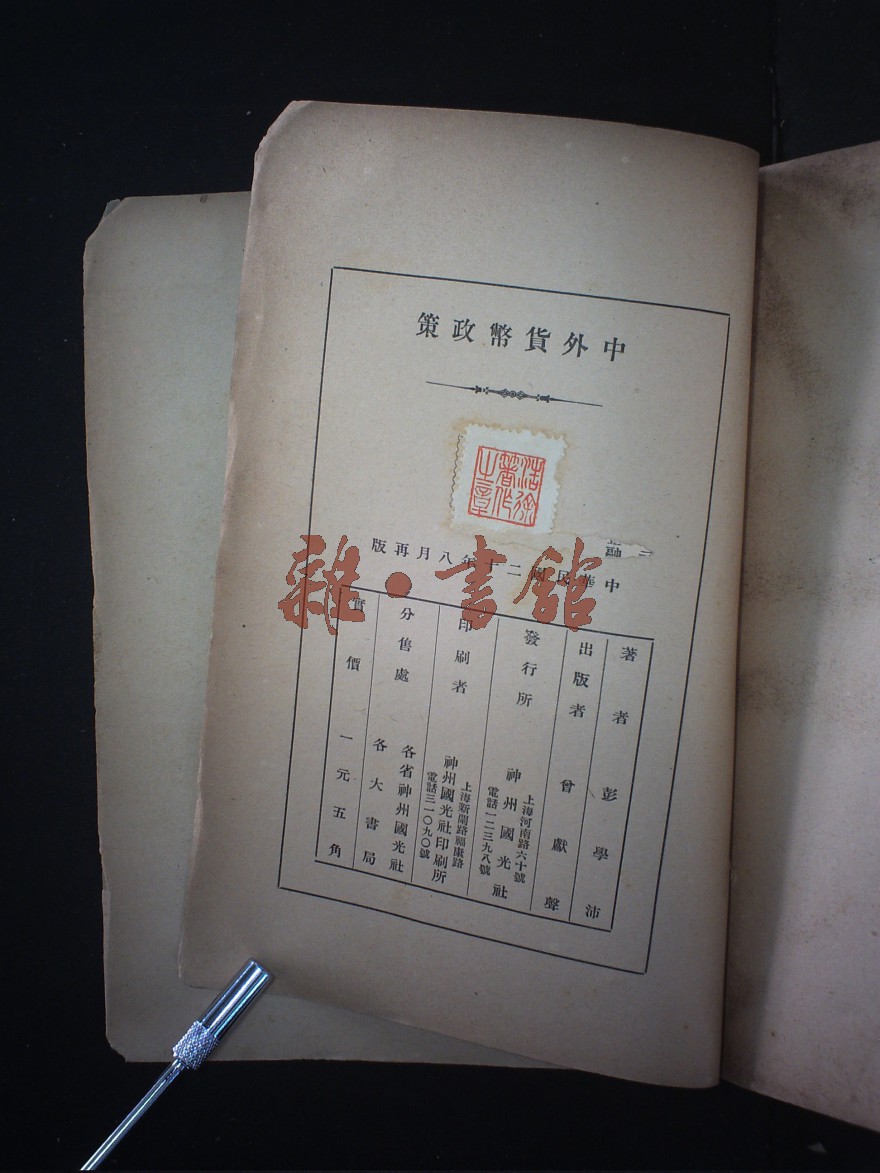 中外貨幣政策
浩徐
著作
之章
中華民國二十年八月再版
著者 彭學沛
出版者 曾獻聲
發行所 上海河南路六十號
神州國光社
電話一二三九八號
印刷者 上海新閘路福康路
神州國光社印刷所
電話三一〇九〇號
分售處 各省神州國光社
各大書局
實價 一元五角
雜·書館